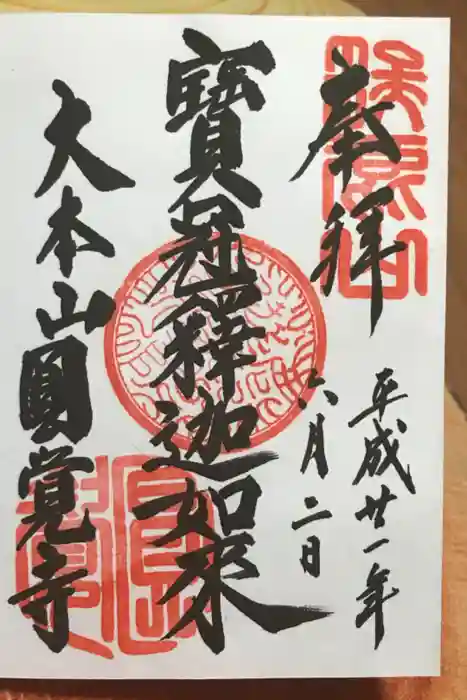 奉拝
平成廿一年
六月二日
寶冠釋迦如來
大本山圓覺寺